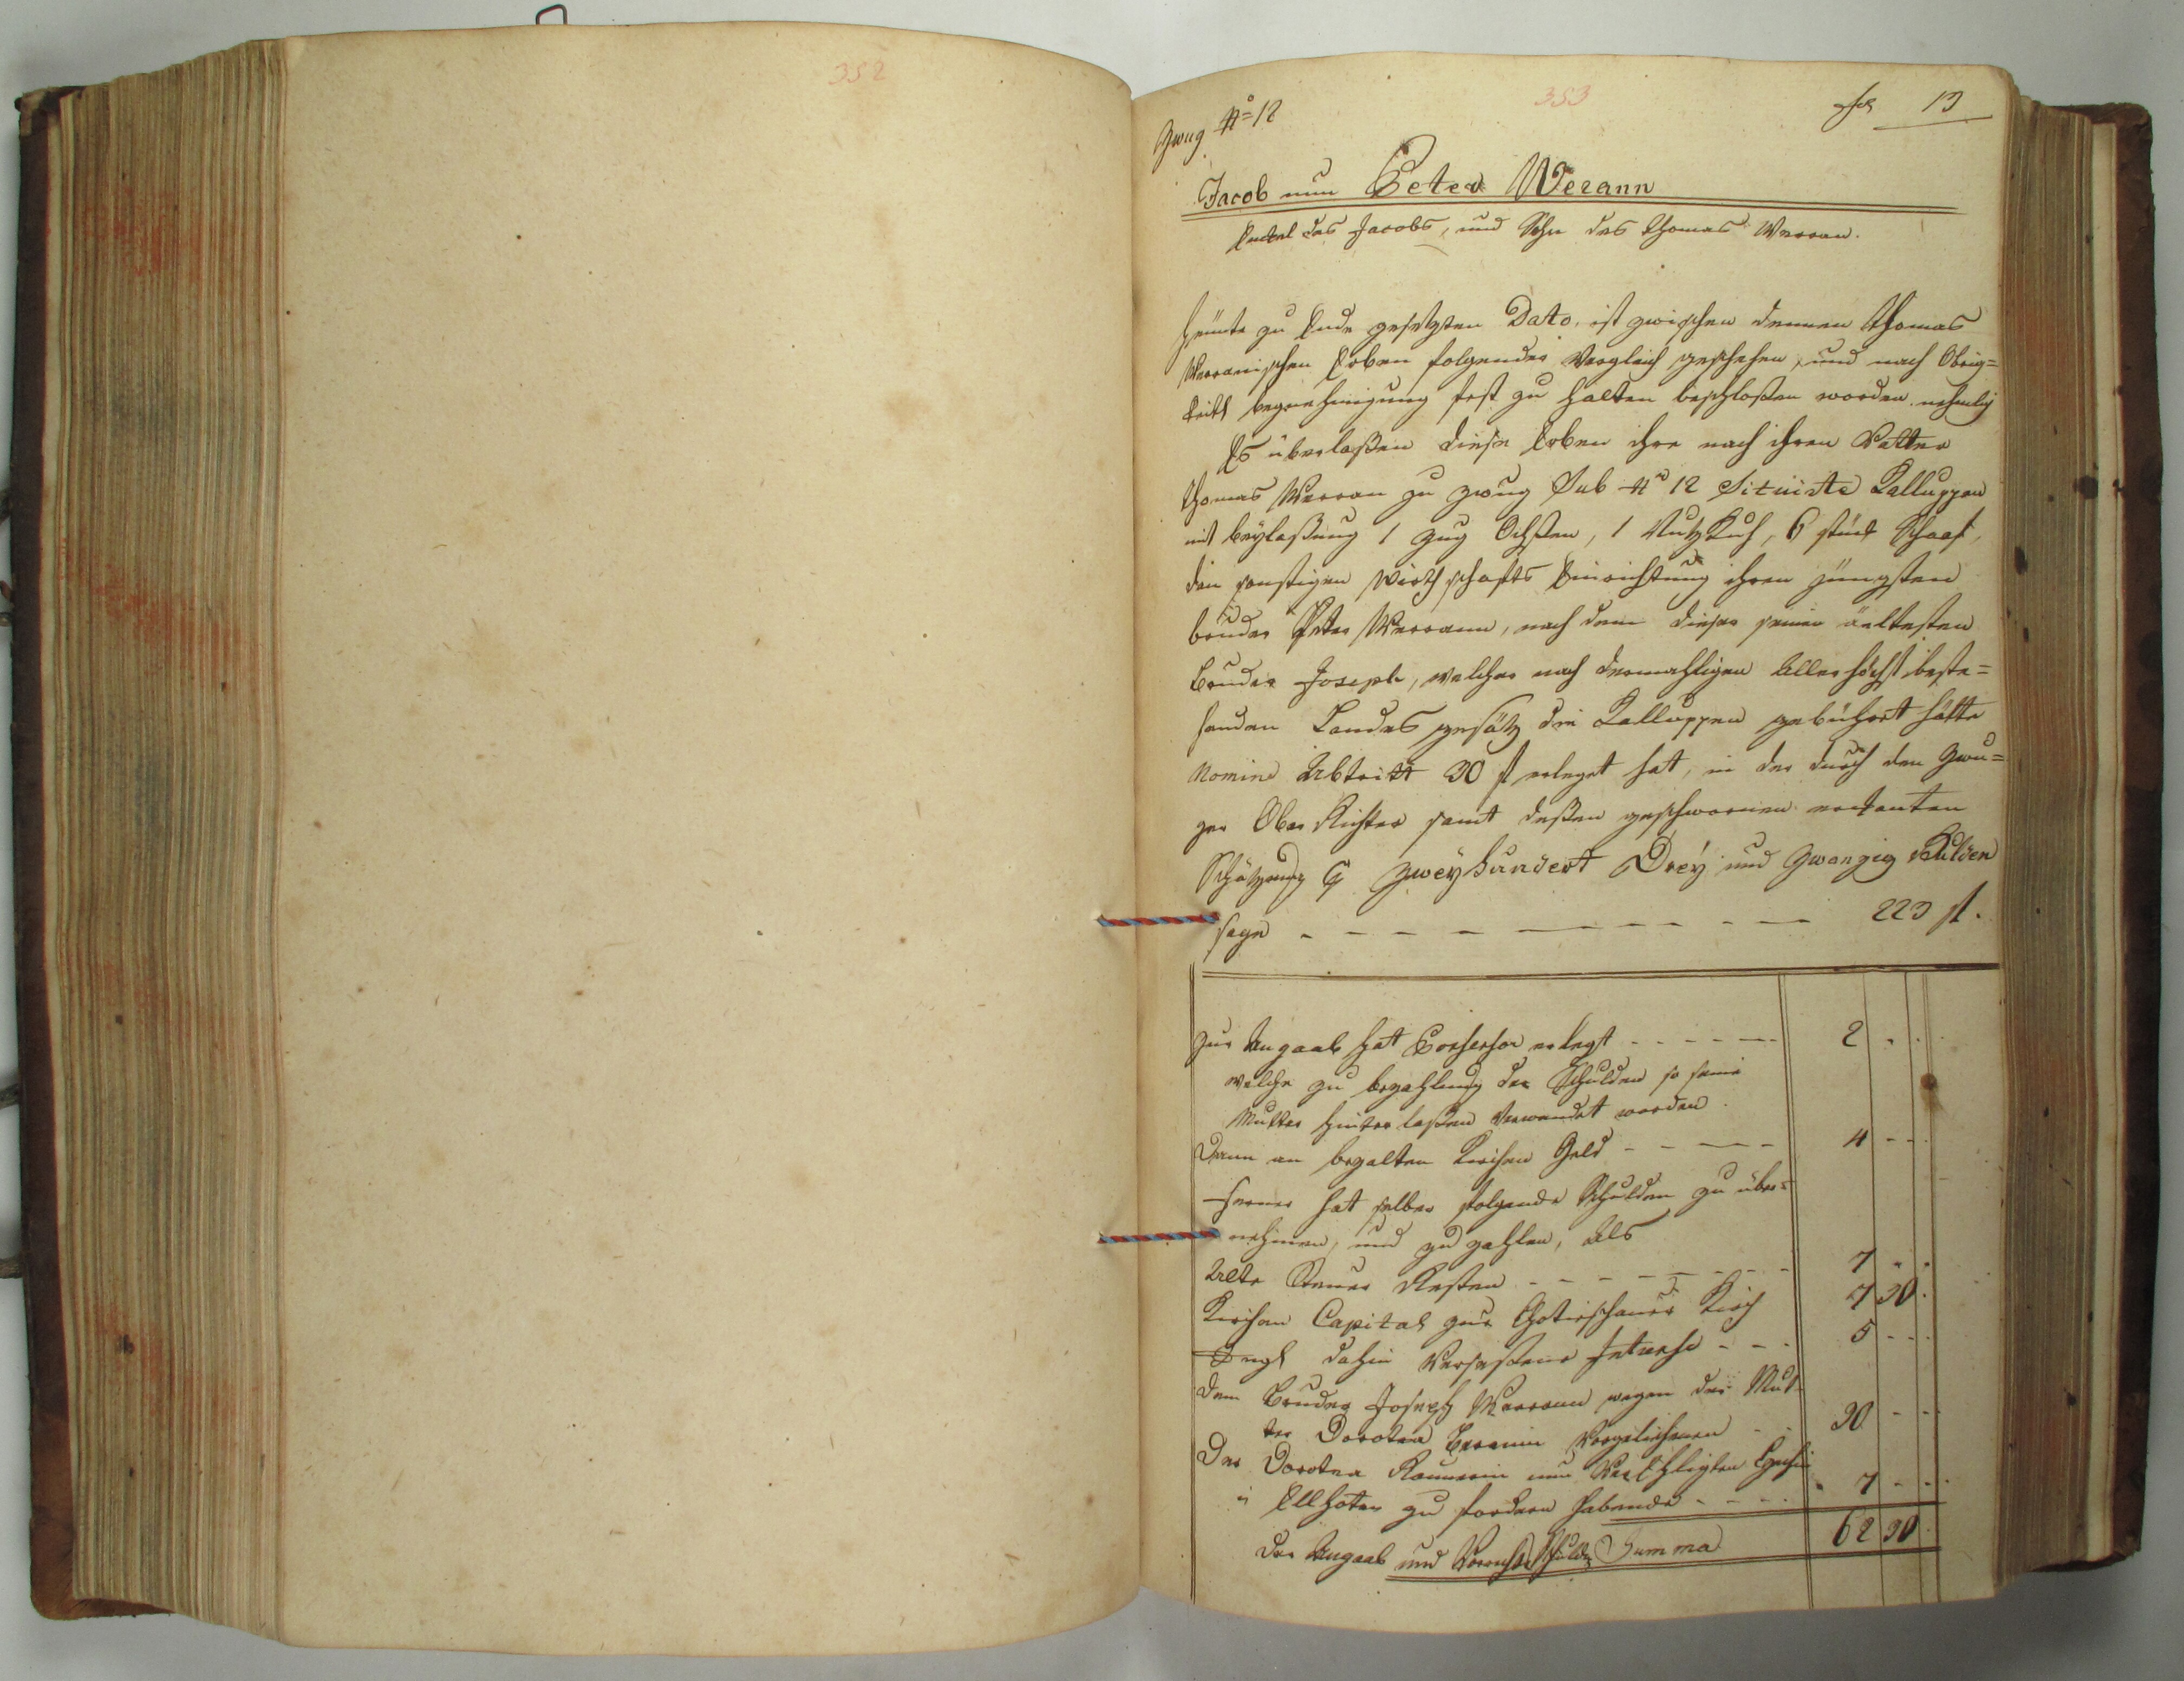 352
353
Zwug No 12
Fol 13
Jacob nun Peter Werann
Enckel des Jacobs, und Sohn des Thomas Werran.
Heünte zu Ende gesetzten Dato, ist zwischen dennen Thomas
Werranischen Erben folgender Vergleich geschehen, und nach Obrig=
keitl begnehmigung fest zu halten beschloßen worden nehmlich
Es überlaßen diese Erben ihre nach ihren Vatter
Thomas Werran zu Zwug Sub No 12 Situirte Kalluppen
mit beylaßung 1 Zug Ochsen, 1 Nutz Kuh, 6 stück Schaaf,
den sonstigen Wirthschafts Einrichtung ihren jüngsten
bruder Peter Werrann, nach dem dieser seinen ältesten
Bruder Joseph, welcher nach dermahligen Allerhöchst beste=
henden Landes gesätz die Kalluppen gebührt hätte
Nomine Abtritt 30 f erleget hat, in der durch den Zwu=
ger Ober Richter samt deßen geschwornen erkanten
Schätzung P Zweyhundert Drey und Zwanzig Gulden
sage - - - - - - - - - 223 f.
Zur Angaab hat Possessor erlegt - - - - - 2 . .
welche zu bezahlung der Schulden so seine
Mutter hinterlaßen Verwendet worden.
Dann an bezalten Kirchen Geld - - - - 4 - -
Ferner hat selber folgende Schulden zu über=
nehmen, und zu zahlen, als
Alte Steuer Resten - - - - - - - - 7 . .
Kirchen Capital zur Chotieschauer Kirch 7 30 .
dahin Verseßene Interesse - - - 5 - -
dem Bruder Joseph Werrann wegen der Mut-
ter Dorotea Vorgeliehenen - - 30 - -
Der Dorotea nun Verehligten
in Ellhoten zu fordern habende - - - - 7 - -
Der Angaab und Schulden Summa 62 30